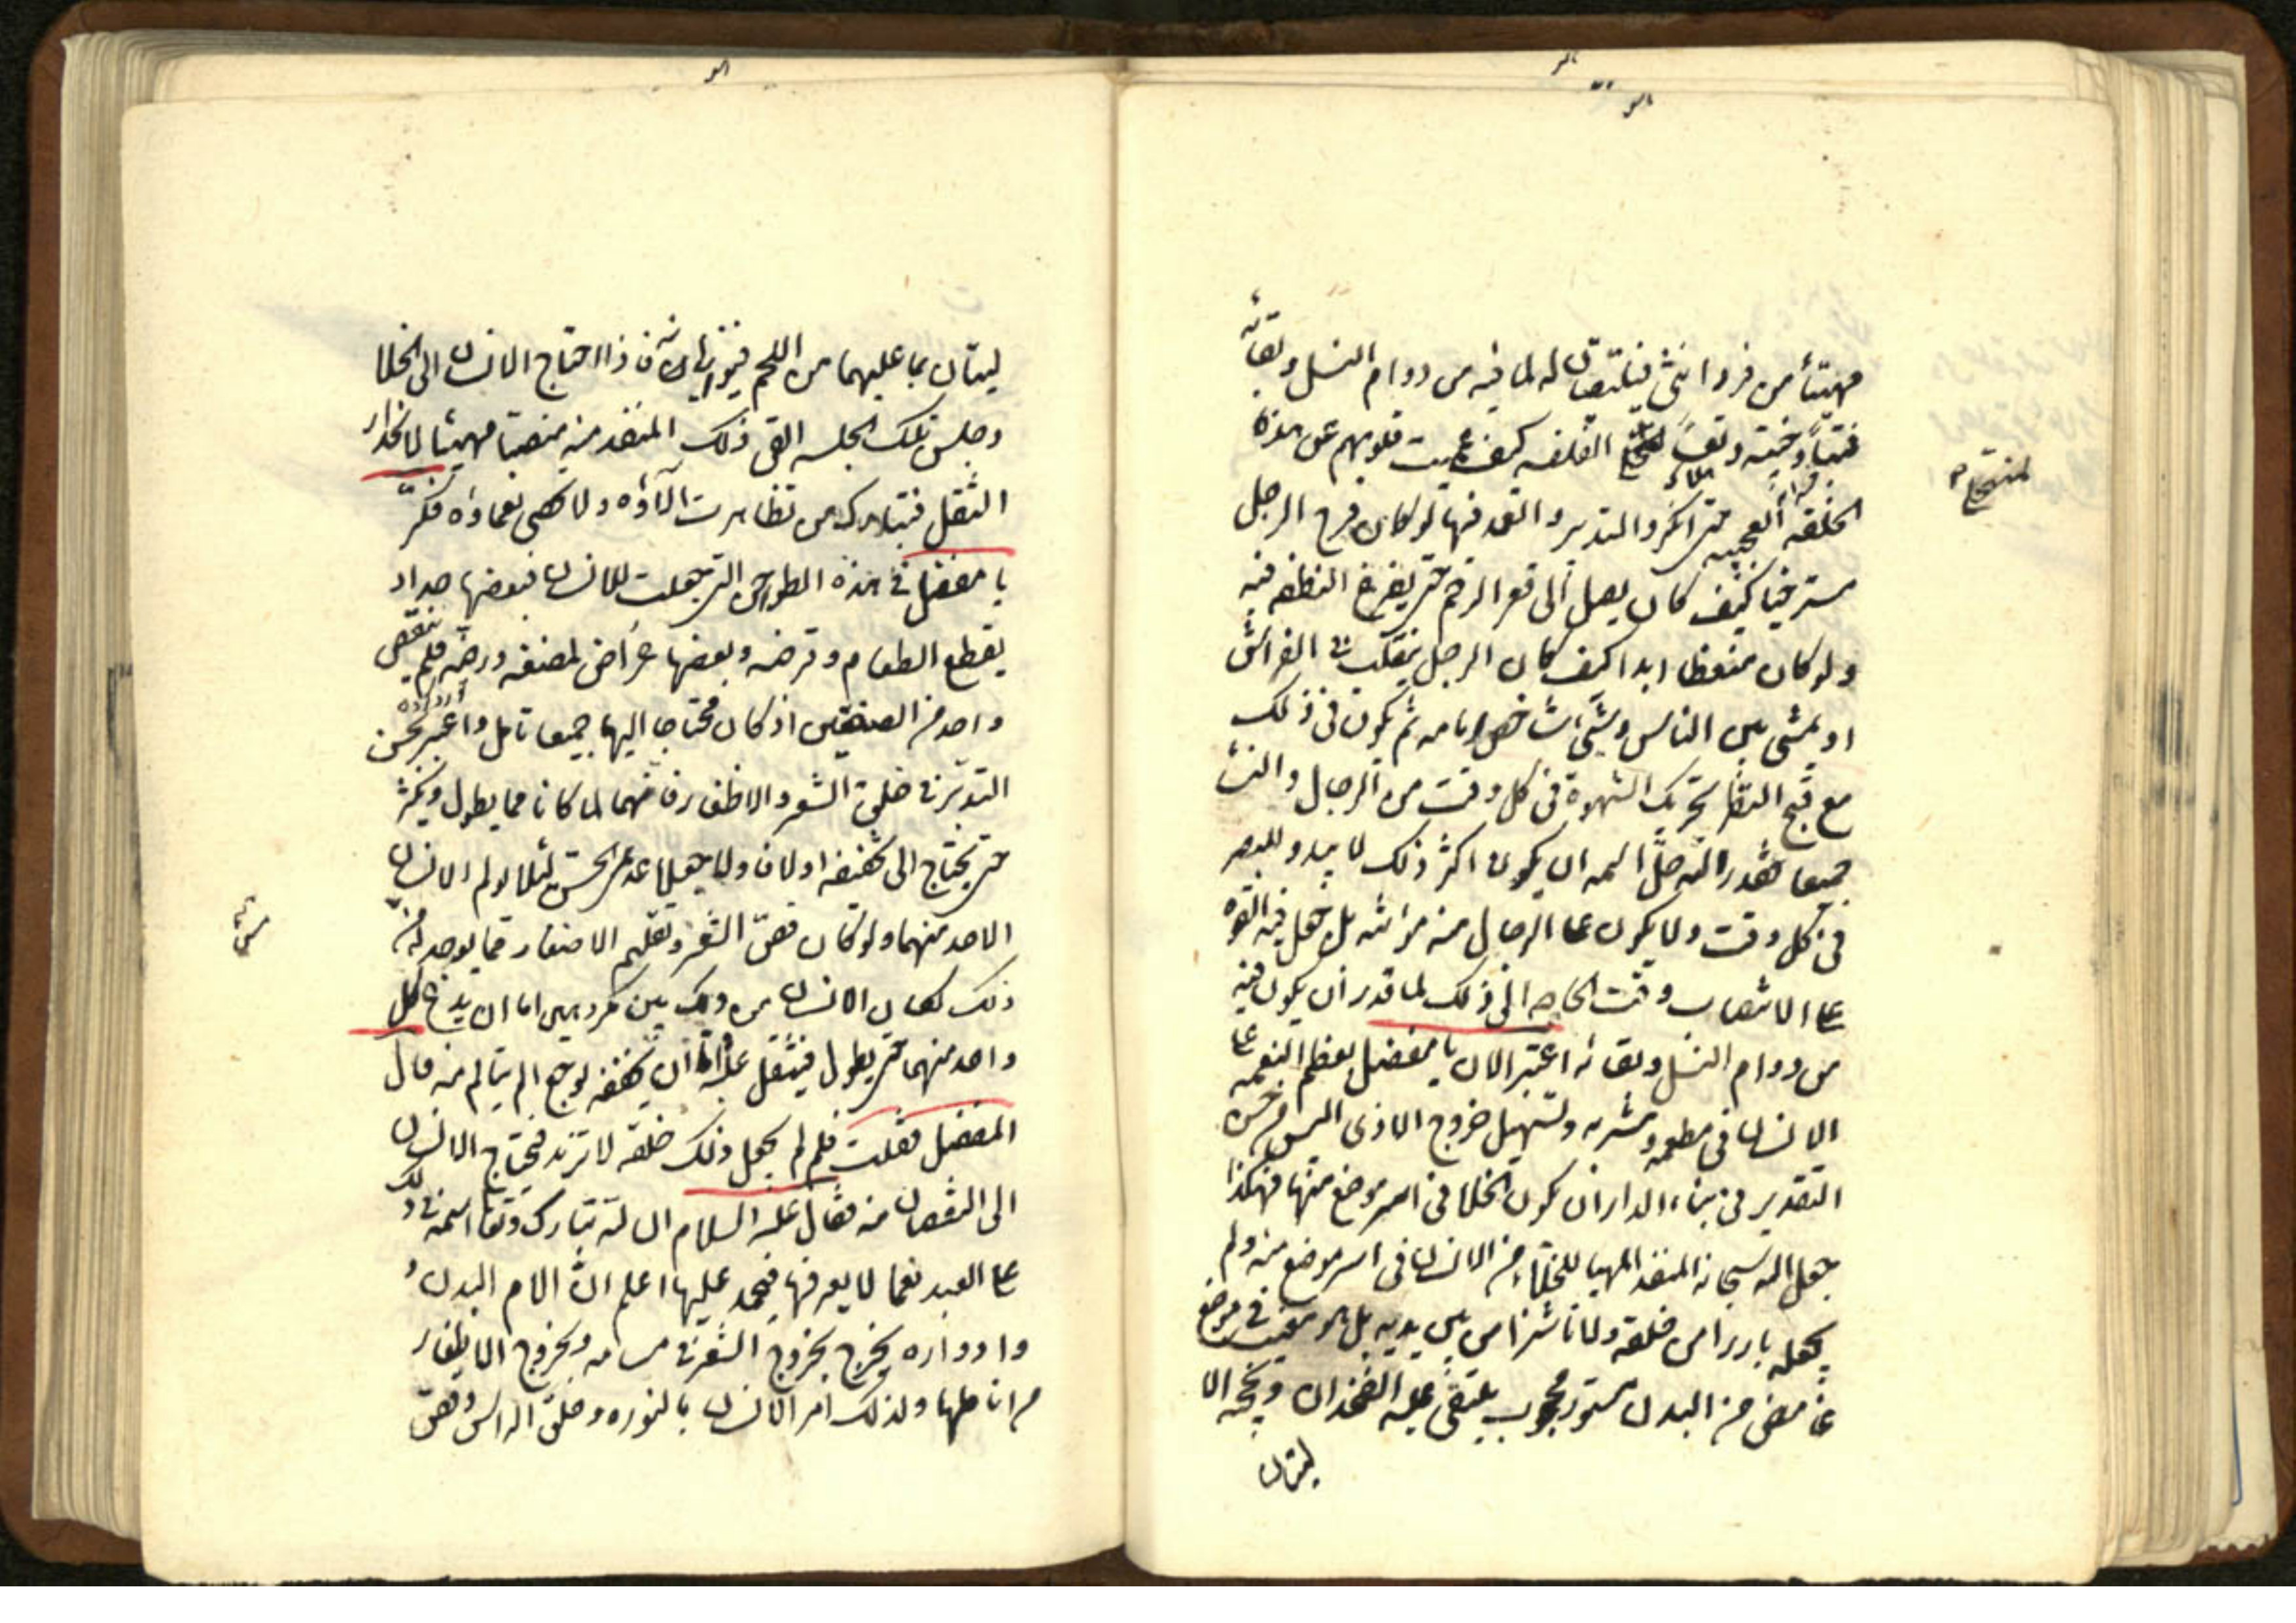 مهيئا من فرد انثى فيلتقيان له لما فيه من دوام النسل وبقائه
فتبا وخيبة وتعسا لمنتحلي الفلسفه كيف عميت قلوبهم عن هذه
الخلقه العجيبه حتى انكروا التدبير والعمد فيها لو كان فرج الرجل
مسترخيا كيف كان يصل الى قعر الرحم حتى يفرغ النطفه فيه
ولو كان منعظا ابدا كيف كان الرجل يتقلب في الفراش
او يمشي بين الناس وشيء شاخص امامه ثم يكون في ذلك
مع قبح المنظر تحريك الشهوة في كل وقت من الرجال والنساء
جميعا فقدر الله جل اسمه ان يكون اكثر ذلك لا يبدو للبصر
في كل وقت ولا يكون على الرجال منه مؤنة بل جعل فيه القوه
على الانتصاب وقت الحاجه الى ذلك لما قدر ان يكون فيه
من دوام النسل وبقائه اعتبر الان يا مفضل بعظم النعمه على
الانسان في مطعمه ومشربه وتسهيل خروج الاذى اليس من حسن
التقدير في بناء الدار ان يكون الخلا في استر موضع منها فهكذا
جعل الله سبحانه المنفذ المهيا للخلاء من الانسان في استر موضع منه ولم
يجعله بارزا من خلفه ولا ناشزا من بين يديه بل هو مغيب في موضع
غامض من البدن مستور محجوب يلتقي عليه الفخذان وتحجبه الا
ليتان
ليتان بما عليهما من اللحم فيواريانه فاذا احتاج الانسان الى الخلا
وجلس تلك الجلسه القى ذلك المنفذ منه منصبا مهيئا لانحدار
الثفل فتبارك من تظاهرت آلاؤه ولا تحصى نعماؤه فكر
يا مفضل في هذه الطواحن التي جعلت للانسان فبعضها حداد
يقطع الطعام وقرضه وبعضها عراض لمضغه ورضه فلم ينقص
واحد من الصنفين اذ كان محتاجا اليهما جميعا تامل واعتبر بحسن
التدبير في خلق الشعر والاظفار فانهما لما كانا مما يطول ويكثر
حتى يحتاج الى تخفيفه اولا فاولا جعلا عديمي الحس لئلا يولم الانسان
الاخذ منهما ولو كان قص الشعر وتقليم الاظفار مما يوجد له مس
ذلك لكان الانسان من ذلك بين مكروهين اما ان يدع كل
واحد منهما حتى يطول فيثقل عليه واما ان يخففه بوجع الم يتالم منه قال
المفضل فقلت فلم لم يجعل ذلك خلقه لا تزيد فيحتاج الانسان
الى النقصان منه فقال عليه السلام ان لله تبارك وتعالى اسمه في ذلك
على العبد نعما لا يعرفها فيحمد عليها اعلم ان الام البدن و
وادواره يخرج بخروج الشعر في مسامه وبخروج الاظفار
من اناملها ولذلك امر الانسان بالنوره وحلق الراس وقص